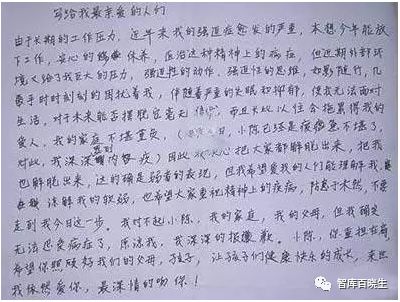 写给我最亲爱的人们
由于长期的工作压力，近年来我的强迫症愈发的严重，本想今年能放
下工作，安心的休养，医治这种精神上的病症，但近期外部环
境又给了我巨大的压力，强迫性的动作、强迫性的思维，如影随行，几
乎时时刻刻的困扰着我，伴随着严重的失眠和抑郁，使我无法面对
生活，对于未来能否摆脱它毫无信心，而且长此以往会拖累得我的
爱人，我的家庭不堪重负，（小陈已经是疲惫不堪了，
对此，我深深感到内疚）因此我决心把大家都解脱出来，把我
也解脱出来，这的确是弱者的表现，但我希望爱我的人们能理解我，
谅解我的软弱，也希望大家重视精神上的疾病，防患于未然，不要
走到我今日这一步。我对不起小陈，我的家庭，我的父母，但我确实
无法忍受病症了，原谅我，我深深的抱歉。小陈，你重担在肩，
希望你照顾好我们的父母，孩子，让孩子们健康快乐的成长，来世
我依然爱你，最深情的吻你！
智库百晓生